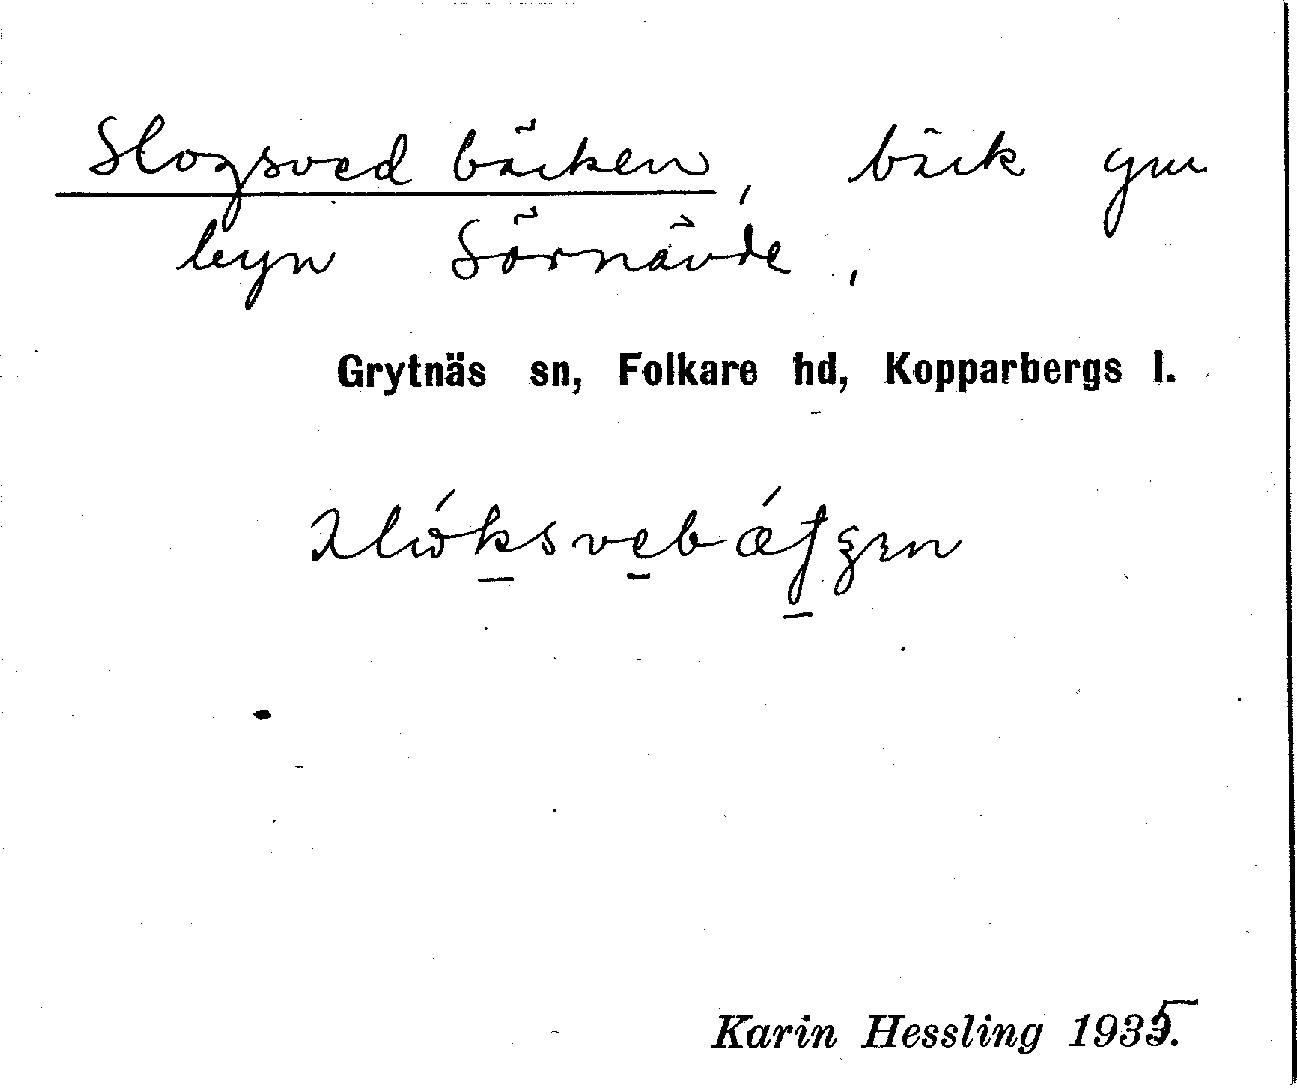 Slogsved bäcken, bäck gm
byn Sörnävde.
Grytnäs sn, Folkare hd, Kopparbergs l.
Karin Hessling 1935.